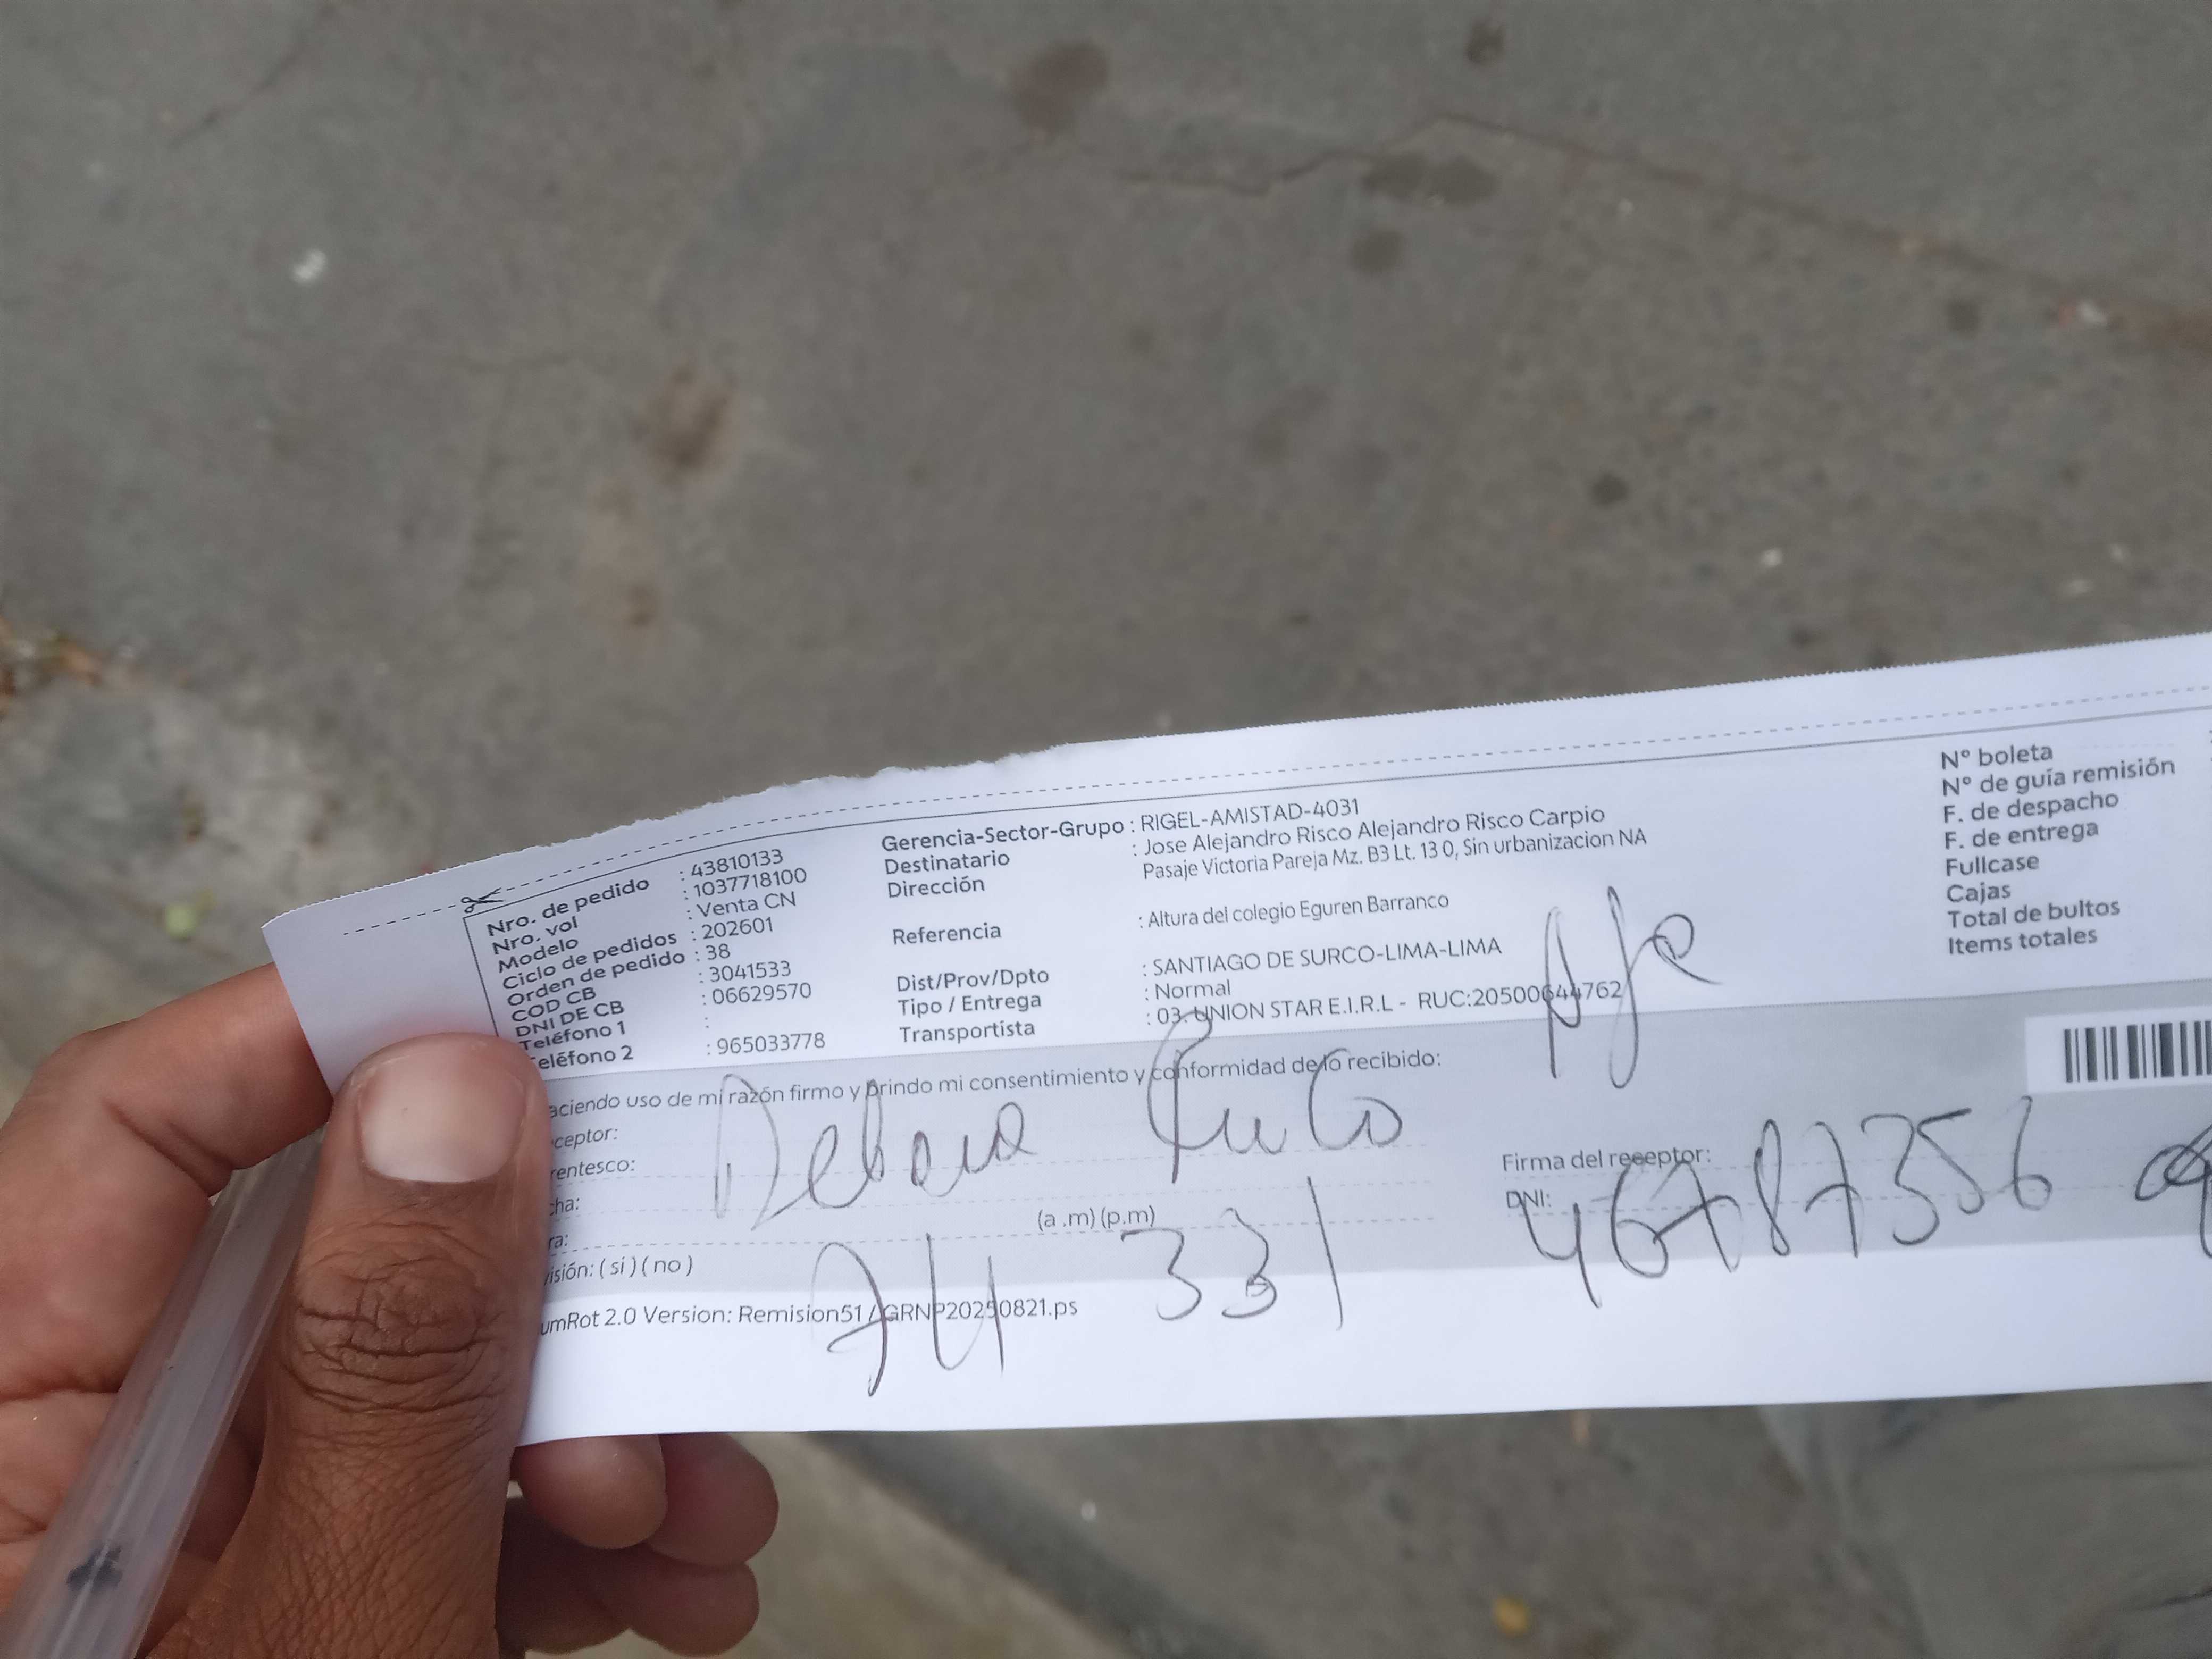 Nro. de pedido : 43810133
Nro. vol : 1037718100
Modelo : Venta CN
Ciclo de pedidos : 202601
Orden de pedido : 38
COD CB : 3041533
DNI DE CB : 06629570
Teléfono 1 :
eléfono 2 : 965033778
Gerencia-Sector-Grupo : RIGEL-AMISTAD-4031
Destinatario : Jose Alejandro Risco Alejandro Risco Carpio
Dirección Pasaje Victoria Pareja Mz. B3 Lt. 13 0, Sin urbanizacion NA
Referencia : Altura del colegio Eguren Barranco
Dist/Prov/Dpto : SANTIAGO DE SURCO-LIMA-LIMA
Tipo / Entrega : Normal
Transportista : 03. UNION STAR E.I.R.L - RUC:20500644762
N° boleta
N° de guía remisión
F. de despacho
F. de entrega
Fullcase
Cajas
Total de bultos
Items totales
aciendo uso de mi razón firmo y brindo mi consentimiento y conformidad de lo recibido:
ceptor:
rentesco:
cha:
ra: (a .m) (p.m)
isión: ( si ) ( no )
Firma del receptor:
DNI: 46787356
331
umRot 2.0 Version: Remision51 / GRNP20250821.ps